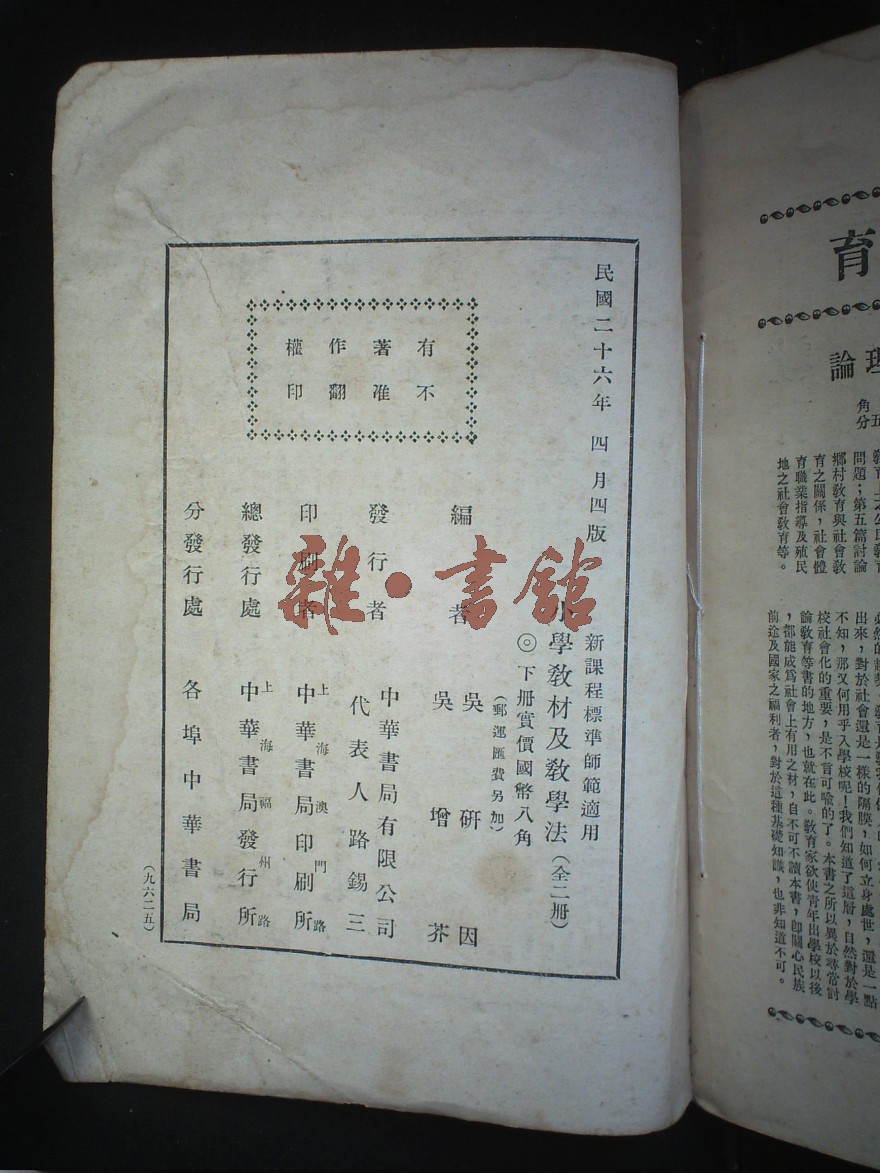 民國二十六年四月四版
新課程標準師範適用
小學教材及教學法(全二册)
◎下册實價國幣八角
(郵運匯費另加)
有著作權
不准翻印
編者
吳研因
吳增芥
發行者
中華書局有限公司
代表人路錫三
印刷者
上海澳門路
中華書局印刷所
總發行處
上海福州路
中華書局發行所
分發行處
各埠中華書局
(九六二五)
雜·書館
育
理論
角五分
問題;第五篇討論
鄉村教育與社會敎
育之關係,社會體
育職業指導及殖民
地之社會敎育等。
出來,對於社會還是一樣的隔膜,如何立身處世,還是一點
不知,那又何用乎入學校呢!我們知道了這層,自然對於學
校社會化的重要,是不言可喻的了。本書之所以異於尋常討
論敎育等書的地方,也就在此。敎育家欲使青年出學校以後
,都能成爲社會上有用之材,自不可不讀本書,卽關心民族
前途及國家之福利者,對於這種基礎知識,也非知道不可。